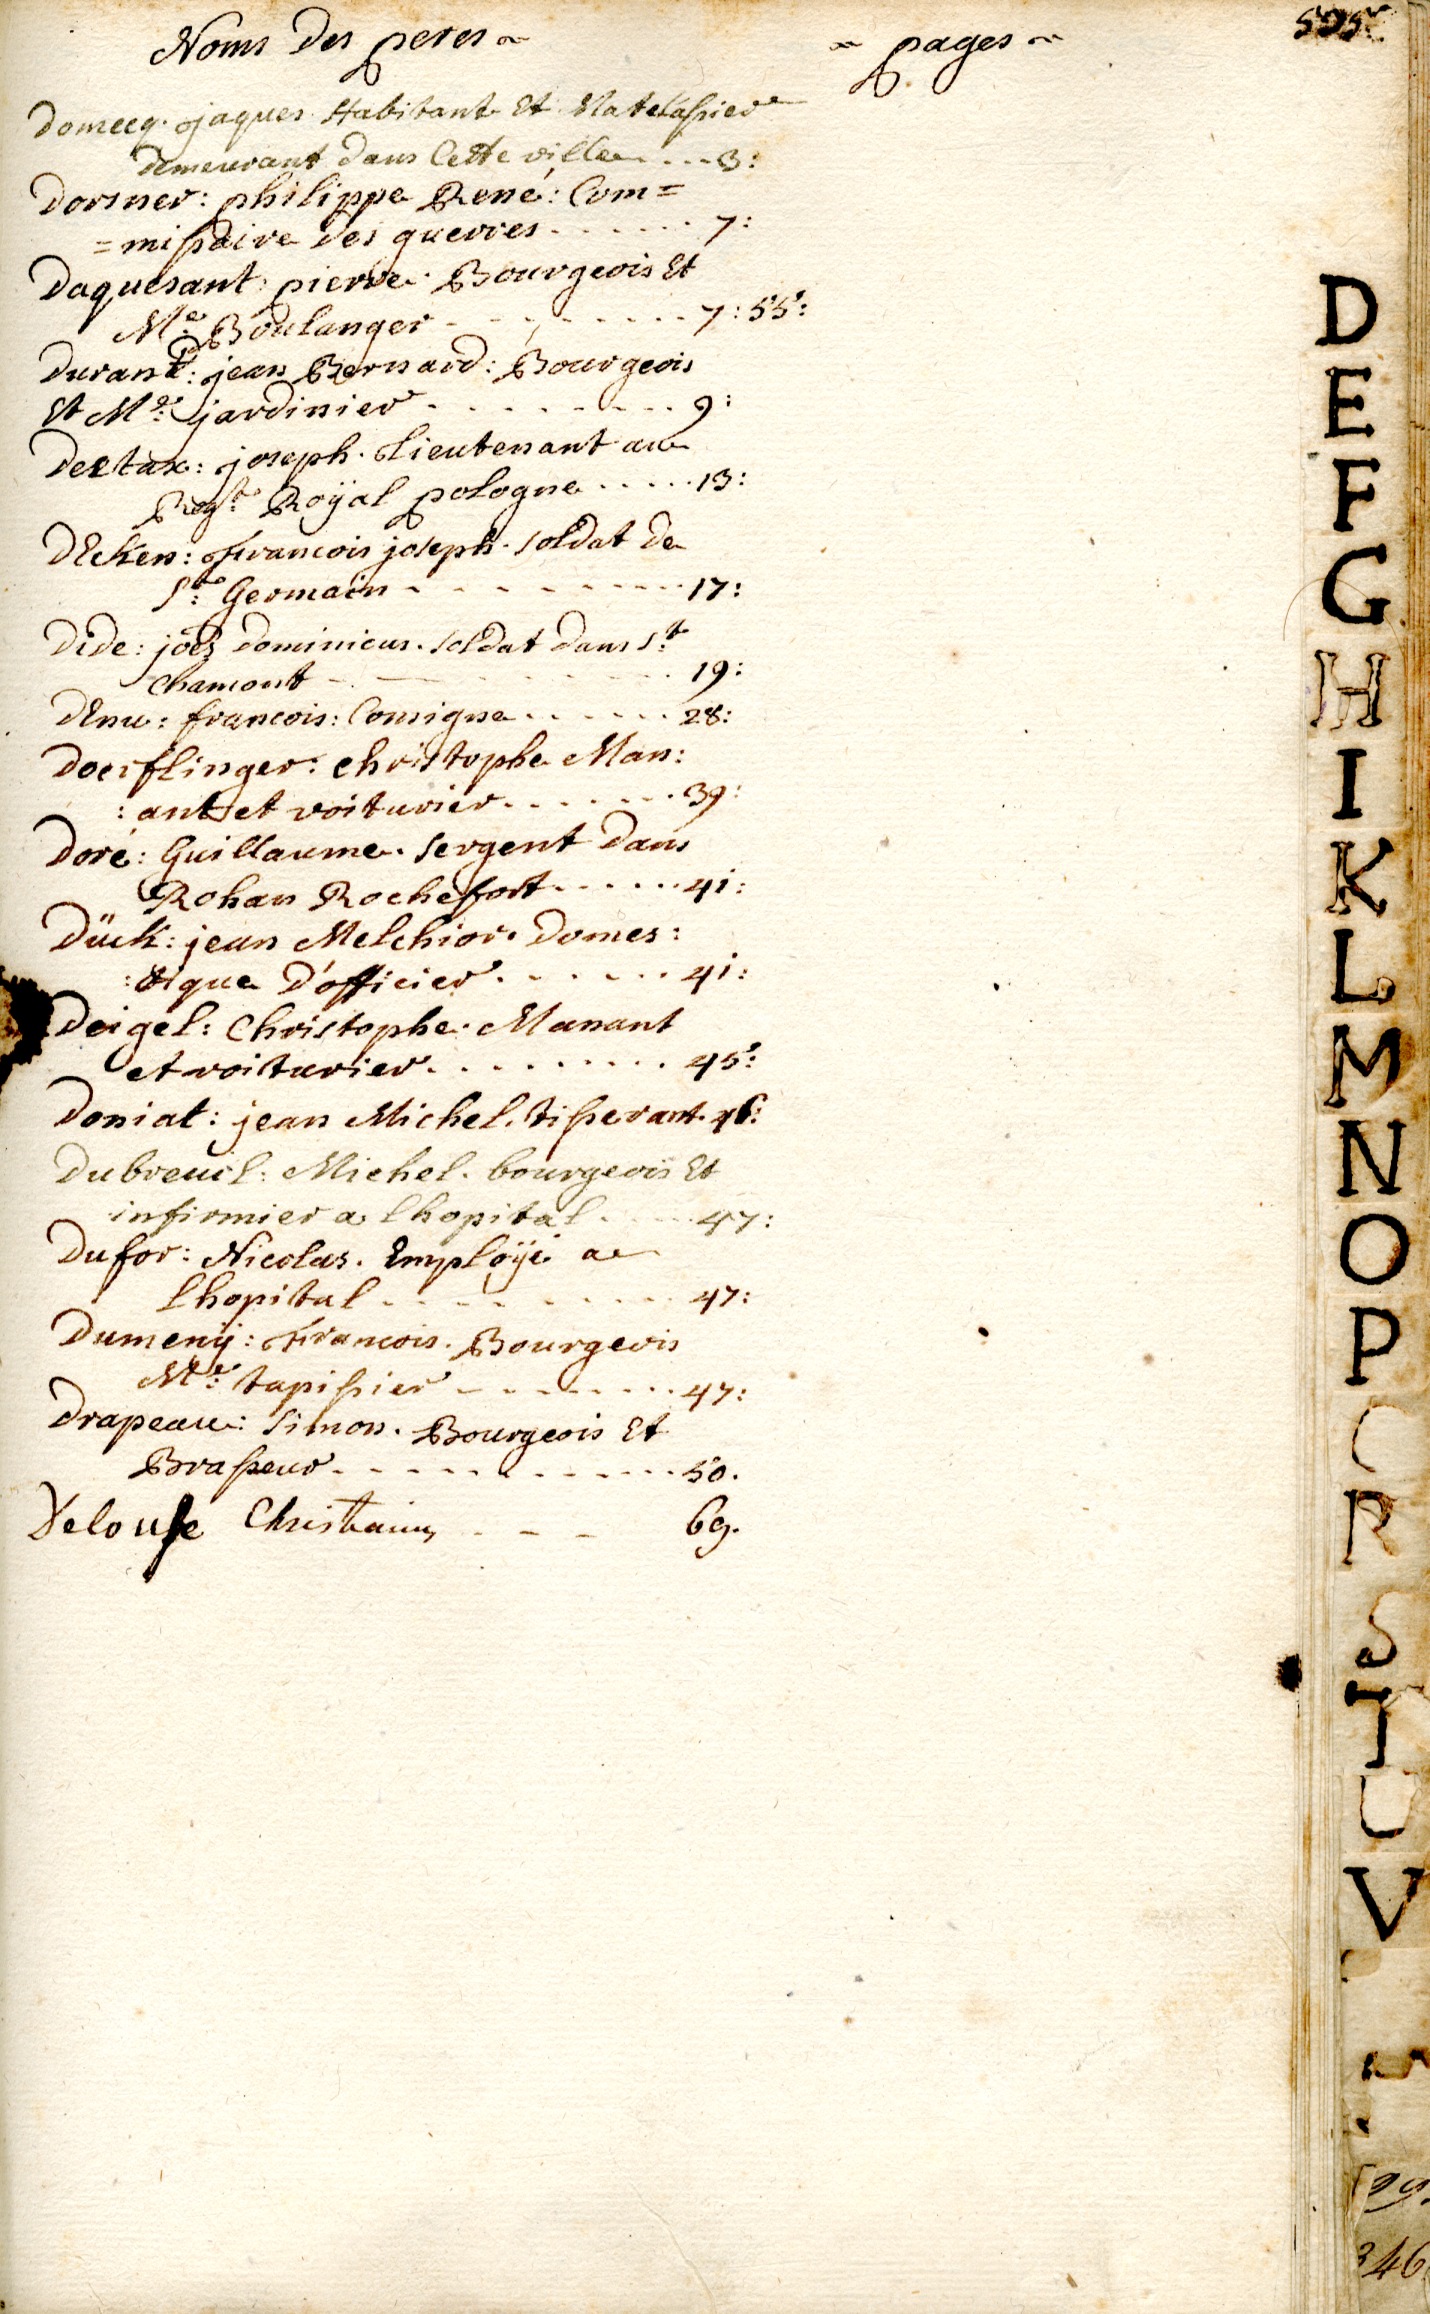 Noms des peres ~ ~ pages ~ 505
Domecq. jaques. Habitant Et Matelassier
demeurant dans Cette ville....3:
Dorsner: philippe René: Com=
=missaire des guerres ...... 7:
Daquesant: pierre. Bourgeois Et
Me. Boulanger ........ 7:55:
Durand: jean Bernard: Bourgeois
Et Me: jardinier ........ 9:
Destax: joseph. Lieutenant au
Regt. Roÿal pologne .....13:
DEcken: Francois joseph. soldat de
St: Germain ........ 17:
Dide: joês dominicus. soldat dans St
Chamont ........ 19:
dEnu: francois: Consigne ...... 28:
Doerflinger: Christophe Man:
:ant et voiturier....... 39:
Doré: Guillaume. sergent dans
Rohan Rochefort...... 41:
Dück: jean Melchior. Domes:
:tique D'officier. ..... 41:
Deigel: Christophe. Manant
et voiturier......... 45:
Doniat: jean Michel. tisserant. 46:
Dubreuil: Michel. bourgeois Et
infirmier a lhopital ..... 47:
Dufor: Nicolas. Emploÿé a
Lhopital ......... 47:
Dumenÿ: Francois. Bourgeois
Me: tapissier ........ 47:
Drapeau: Simon. Bourgeois Et
Brasseur............ 50.
Delousse Christianus - - - 69.
D
E
F
G
H
I
K
L
M
N
O
P
R
S
T
U
V
99.
346